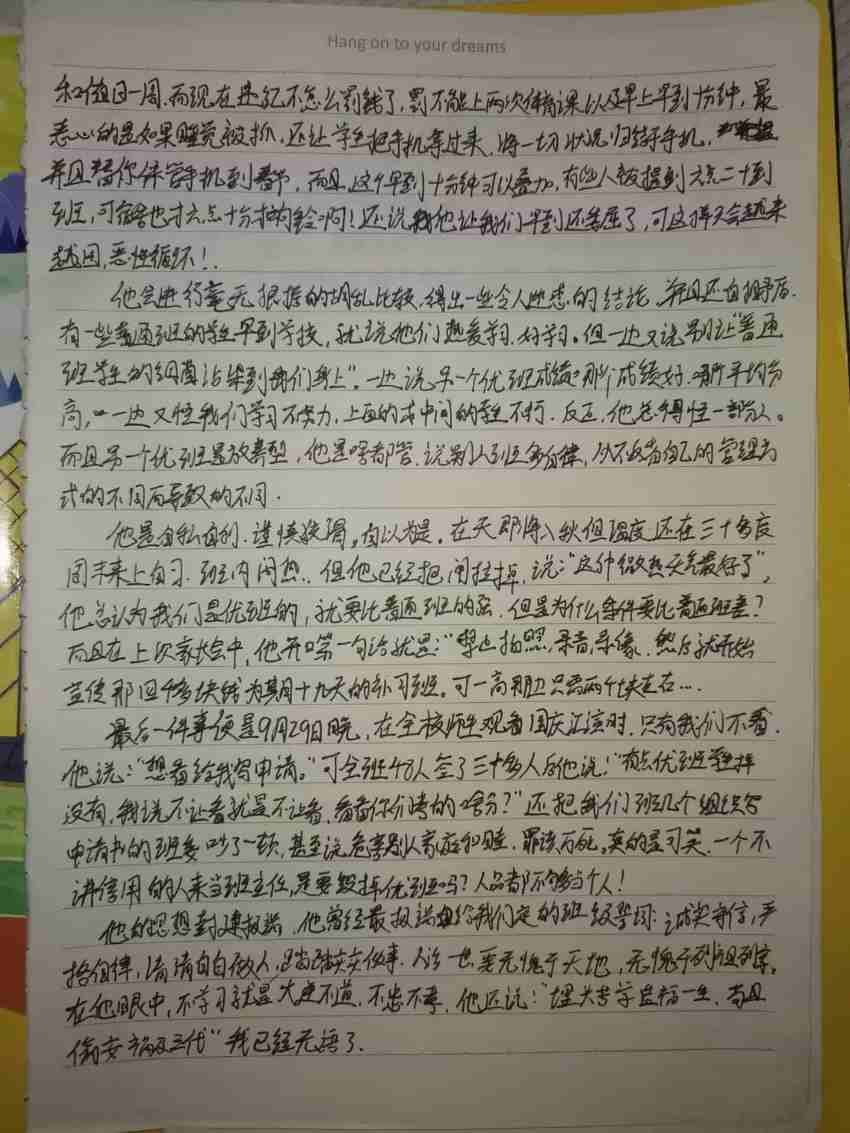 Hang on to your dreams
和值日一周.而现在违纪不怎么罚钱了,罚不能上两次体育课以及早上早到十分钟,最
恶心的是如果睡觉被抓,还让学生把手机拿过来,将一切状况归结于手机,
并且替你保管手机到春节,而且,这个早到十分钟可以叠加,有些人被提到六点二十到
班,可宿舍也才六点十分打内铃啊!还说我他让我们早到还委屈了,可这样只会越来
越困,恶性循环!.
他总进行毫无根据的胡乱比较,得出一些令人迷惑的结论,并且还自相矛盾.
有一些普通班的学生早到学校,就说他们热爱学习,好学习。但一边又说别让"普通
班学生的细菌沾染到我们身上".一边说另一个优班成绩那个成绩好,哪个平均分
高,一边又怪我们学习不努力,上面的或中间的学生不行.反正,他总得怪一部分人。
而且另一个优班是放养型,他是啥都管,说别人班多自律,从不改自己的管理方
式的不同而导致的不同.
他是自私自利.谨慎狡猾,自以为是。在天即将入秋但温度还在三十多度
周末来上自习,班内闷热,但他已经把闸拉掉,说:"这种微热天气最好了",
他总认为我们是优班的,就要比普通班的强.但是为什么条件要比普通班差?
而且在上次家长会中,他开口第一句话就是:"禁止拍照,录音,录像.然后就开始
宣传那四千多块钱为期十九天的补习班.可一高那边只需两千块左右....
最后一件事便是9月29日晚,在全校师生观看国庆汇演时,只有我们不看.
他说:"想看给我写申请。"可全班48人签了三十多人后他说!"有点优班学生样
没有,我说不让看就是不让看,看看你们考的啥分?"还把我们班几个组织写
申请书的班委吵了一顿,甚至说危害别人家庭和睦,罪该万死,真的是可笑.一个不
讲信用的人来当班主任,是要毁掉优班吗?人品都不够当个人!
他的思想封建极端,他曾经最极端曲给我们定的班级誓词:诚实守信,严
格自律,清清白白做人,踏踏实实做事.人活一世要无愧于天地,无愧于列祖列宗,
在他眼中,不学习就是大逆不道,不忠不孝.他还说:"埋头苦学造福一生,苟且
偷安祸及三代"我已经无语了.